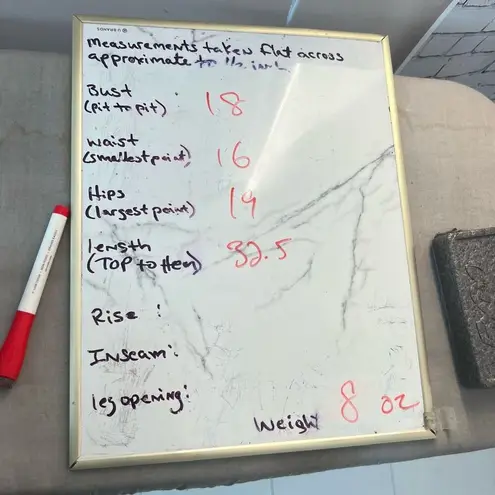 measurements taken flat across
approximate to 1/2 inch
Bust
(pit to pit) 18
waist
(smallest point) 16
Hips
(largest point) 19
length
(TOP to Hem) 32.5
Rise :
Inseam :
leg opening :
Weight 8 oz